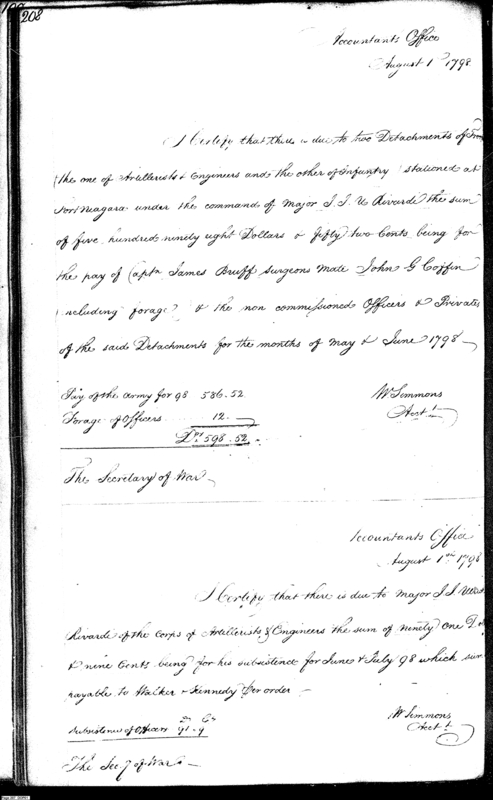 208
Accountants Office
August 1st 1798
I Certify that there is due to two Detachments of
(the one of Artillerists & Engineers and the other of Infantry) stationed at
Fort Niagara under the command of Major J. J. U Rivardi the sum
of five hundred ninety eight Dollars & fifty two Cents being for
the pay of Captn James Bruff Surgeons Mate John G Coffin
(including forage) & the non commissioned Officers & Privates
of the said Detachments for the months of May & June 1798
Pay of the Army for 98 586.52
W Simmons
Forage of Officers 12.
Acct
Drs 598.52.
The Secretary of War
Accountants Office
August 1st 1798
I Certify that there is due to Major J. J.
Rivardi of the Corps of Artillerists & Engineers the sum of ninety One
& nine Cents being for his subsistence for June & July 98 which
payable to Walker & Kennedy Per order
W Simmons
Subsistence of Officers 91.9
Acct
The Secy of War